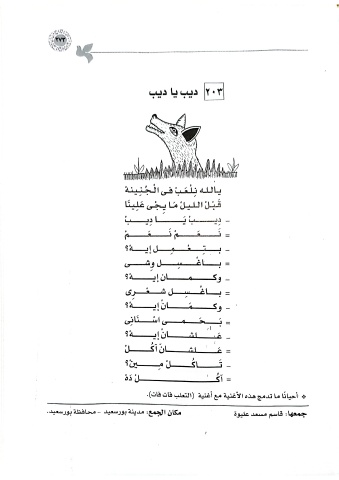 ٢٧٢
٢٠٣ ديب يا ديب
يالله نِلْعَبْ فى الْجُنِينة
قَبْل الليل مَا يِجْى عَلِينَا
- دِيـبْ يَـا دِيـبْ
= نَـعَـمْ نَـعَـمْ
- بِـتِـعْـمِـل إيـة؟
= بـاغْـسِـل وِشِـى
- وكـمـان إيـة؟
= بـاغْـسِـل شـعْـرِى
- وكـمَـان إيـة؟
= بَـحْـمِـى اسْـنَـانِى
- عَـلـشـان إيـة؟
= عَـلـشَـان آكُـلْ
- تَـاكُـلْ مِـيـنْ؟
= آكُـلْ دَهْ
* أحيانًا ما تدمج هذه الأغنية مع أغنية (التعلب فات فات).
جمعها: قاسم مسعد عليوة مكان الجمع: مدينة بورسعيد - محافظة بورسعيد.